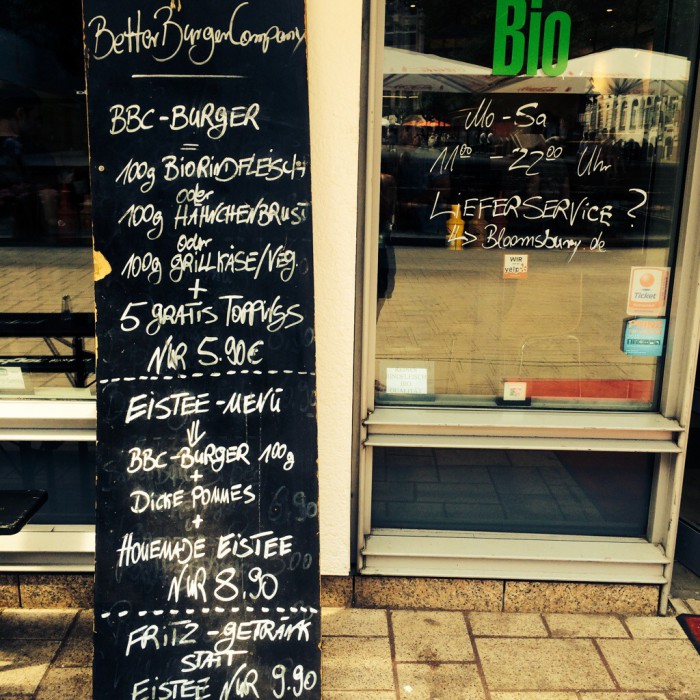 BetterBurgerCompany
BBC-BURGER
=
100g BIORINDFLEISCH
oder
100g HÄHNCHENBRUST
oder
100g GRILLKÄSE/VEG.
+
5 GRATIS TOPPINGS
NUR 5.90€
EISTEE-MENÜ
BBC-BURGER 100g
+
DICKE POMMES
+
HOMEMADE EISTEE
NUR 8.90
FRITZ-GETRÄNK
STATT
EISTEE NUR 9.90
Bio
Mo-Sa
11⁰⁰ - 22⁰⁰ Uhr
LIEFERSERVICE?
Bloomsbury.de
WIR
Ticket